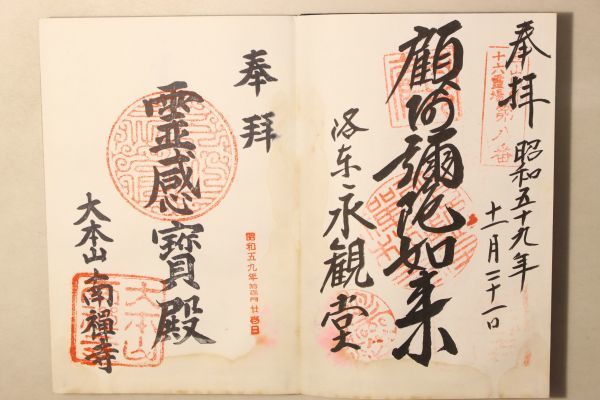 奉拝
昭和五十九年
十一月二十一日
十六霊場第八番
顧阿彌陀如来
洛东永観堂
奉拜
靈感寶殿
大本山南禪寺
大本山
昭和五九年
廿壱日